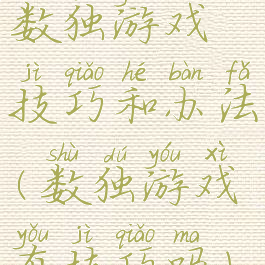 数独游戏
jì qiǎo hé bàn fǎ
技巧和办法
shù dú yóu xì
(数独游戏
yǒu jì qiǎo ma
有技巧吗)